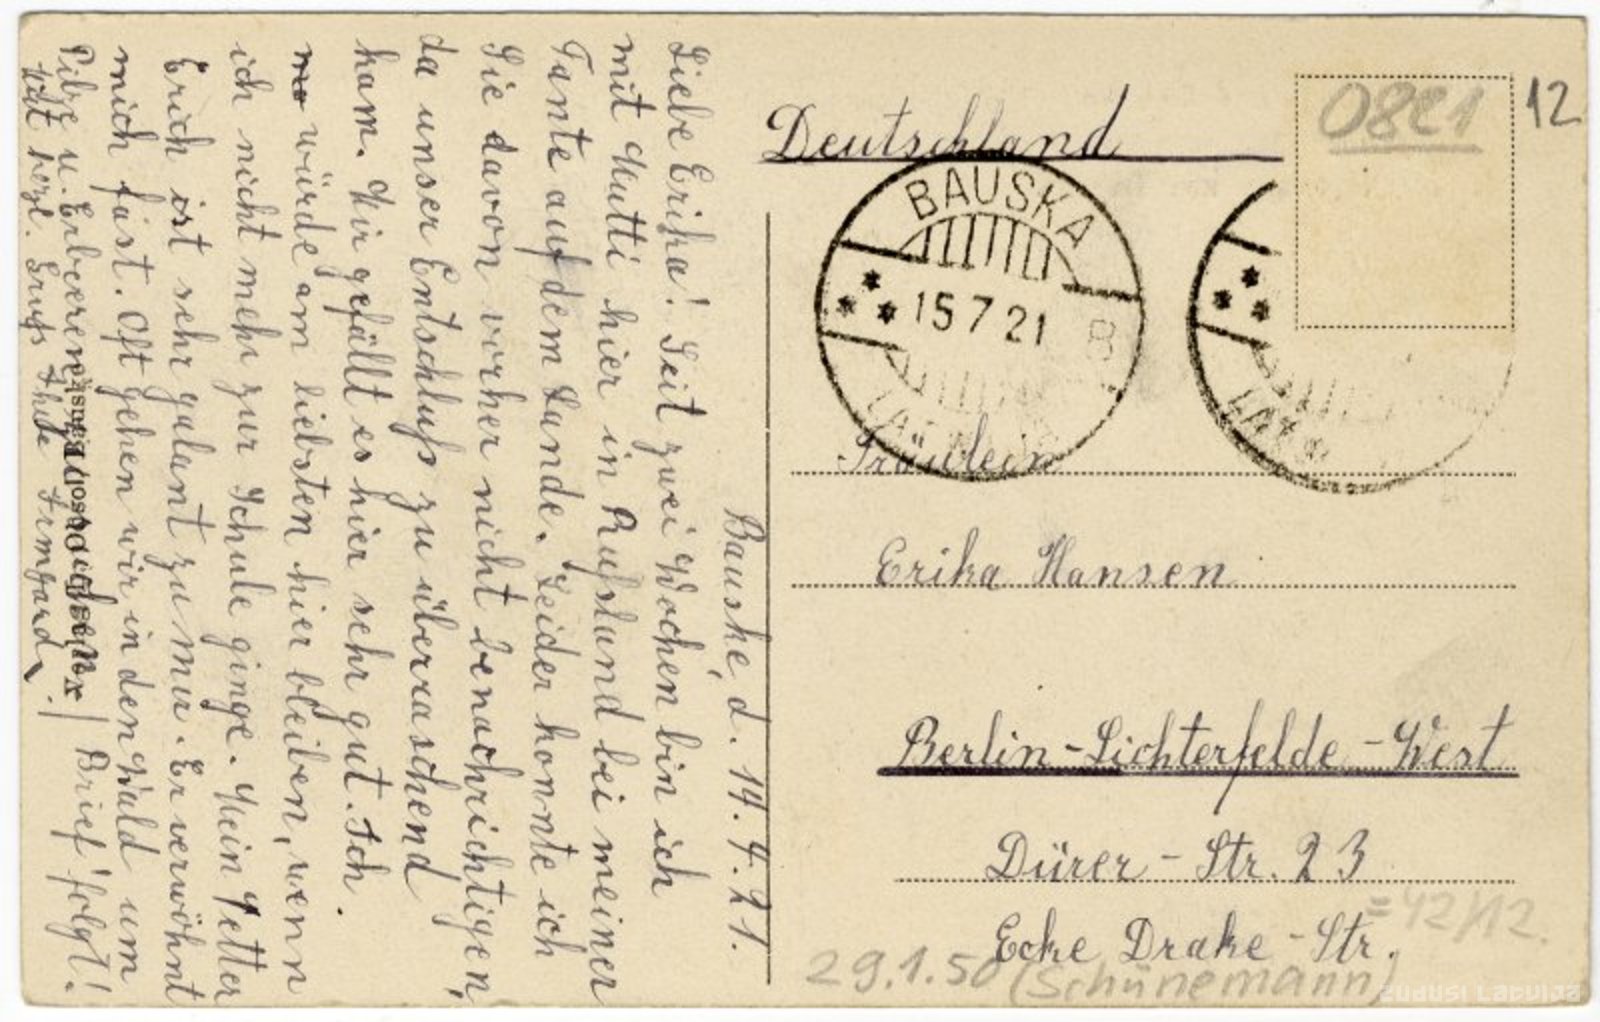 Bauske, d. 14. 7. 21.
Liebe Erika! Seit zwei Wochen bin ich
mit Mutti hier in Rußland bei meiner
Tante auf dem Lande. Leider konnte ich
Sie davon vorher nicht benachrichtigen,
da unser Entschluß zu überraschend
kam. Mir gefällt es hier sehr gut. Ich
würde am liebsten hier bleiben, wenn
ich nicht mehr zur Schule ginge. Mein Vetter
Erich ist sehr galant zu mir. Er verwöhnt
mich fast. Oft gehen wir in den Wald um
Pilze u. Erbeeren
Brief folgt!
herzl. Gruß Ihre Irmgard.
Deutschland
0821
12
BAUSKA
15 7 21
8
LATVIJA
Fräulein
Erika Hansen
Berlin-Lichterfelde-West
Dürer-Str. 23
Ecke Drake-Str.
=42/12.
29.1.50 (Schünemann)
ZUDUSI LATVIJA